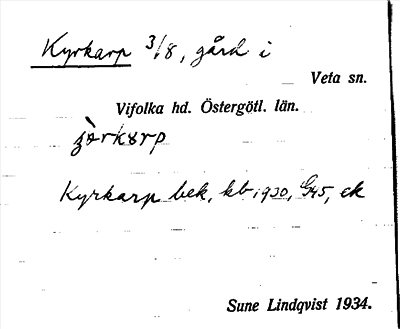 Kyrkarp 3/8, gård i
Veta sn.
Vifolka hd. Östergötl. län.
Kyrkarp bek, kb 1930, G45, ek
Sune Lindqvist 1934.